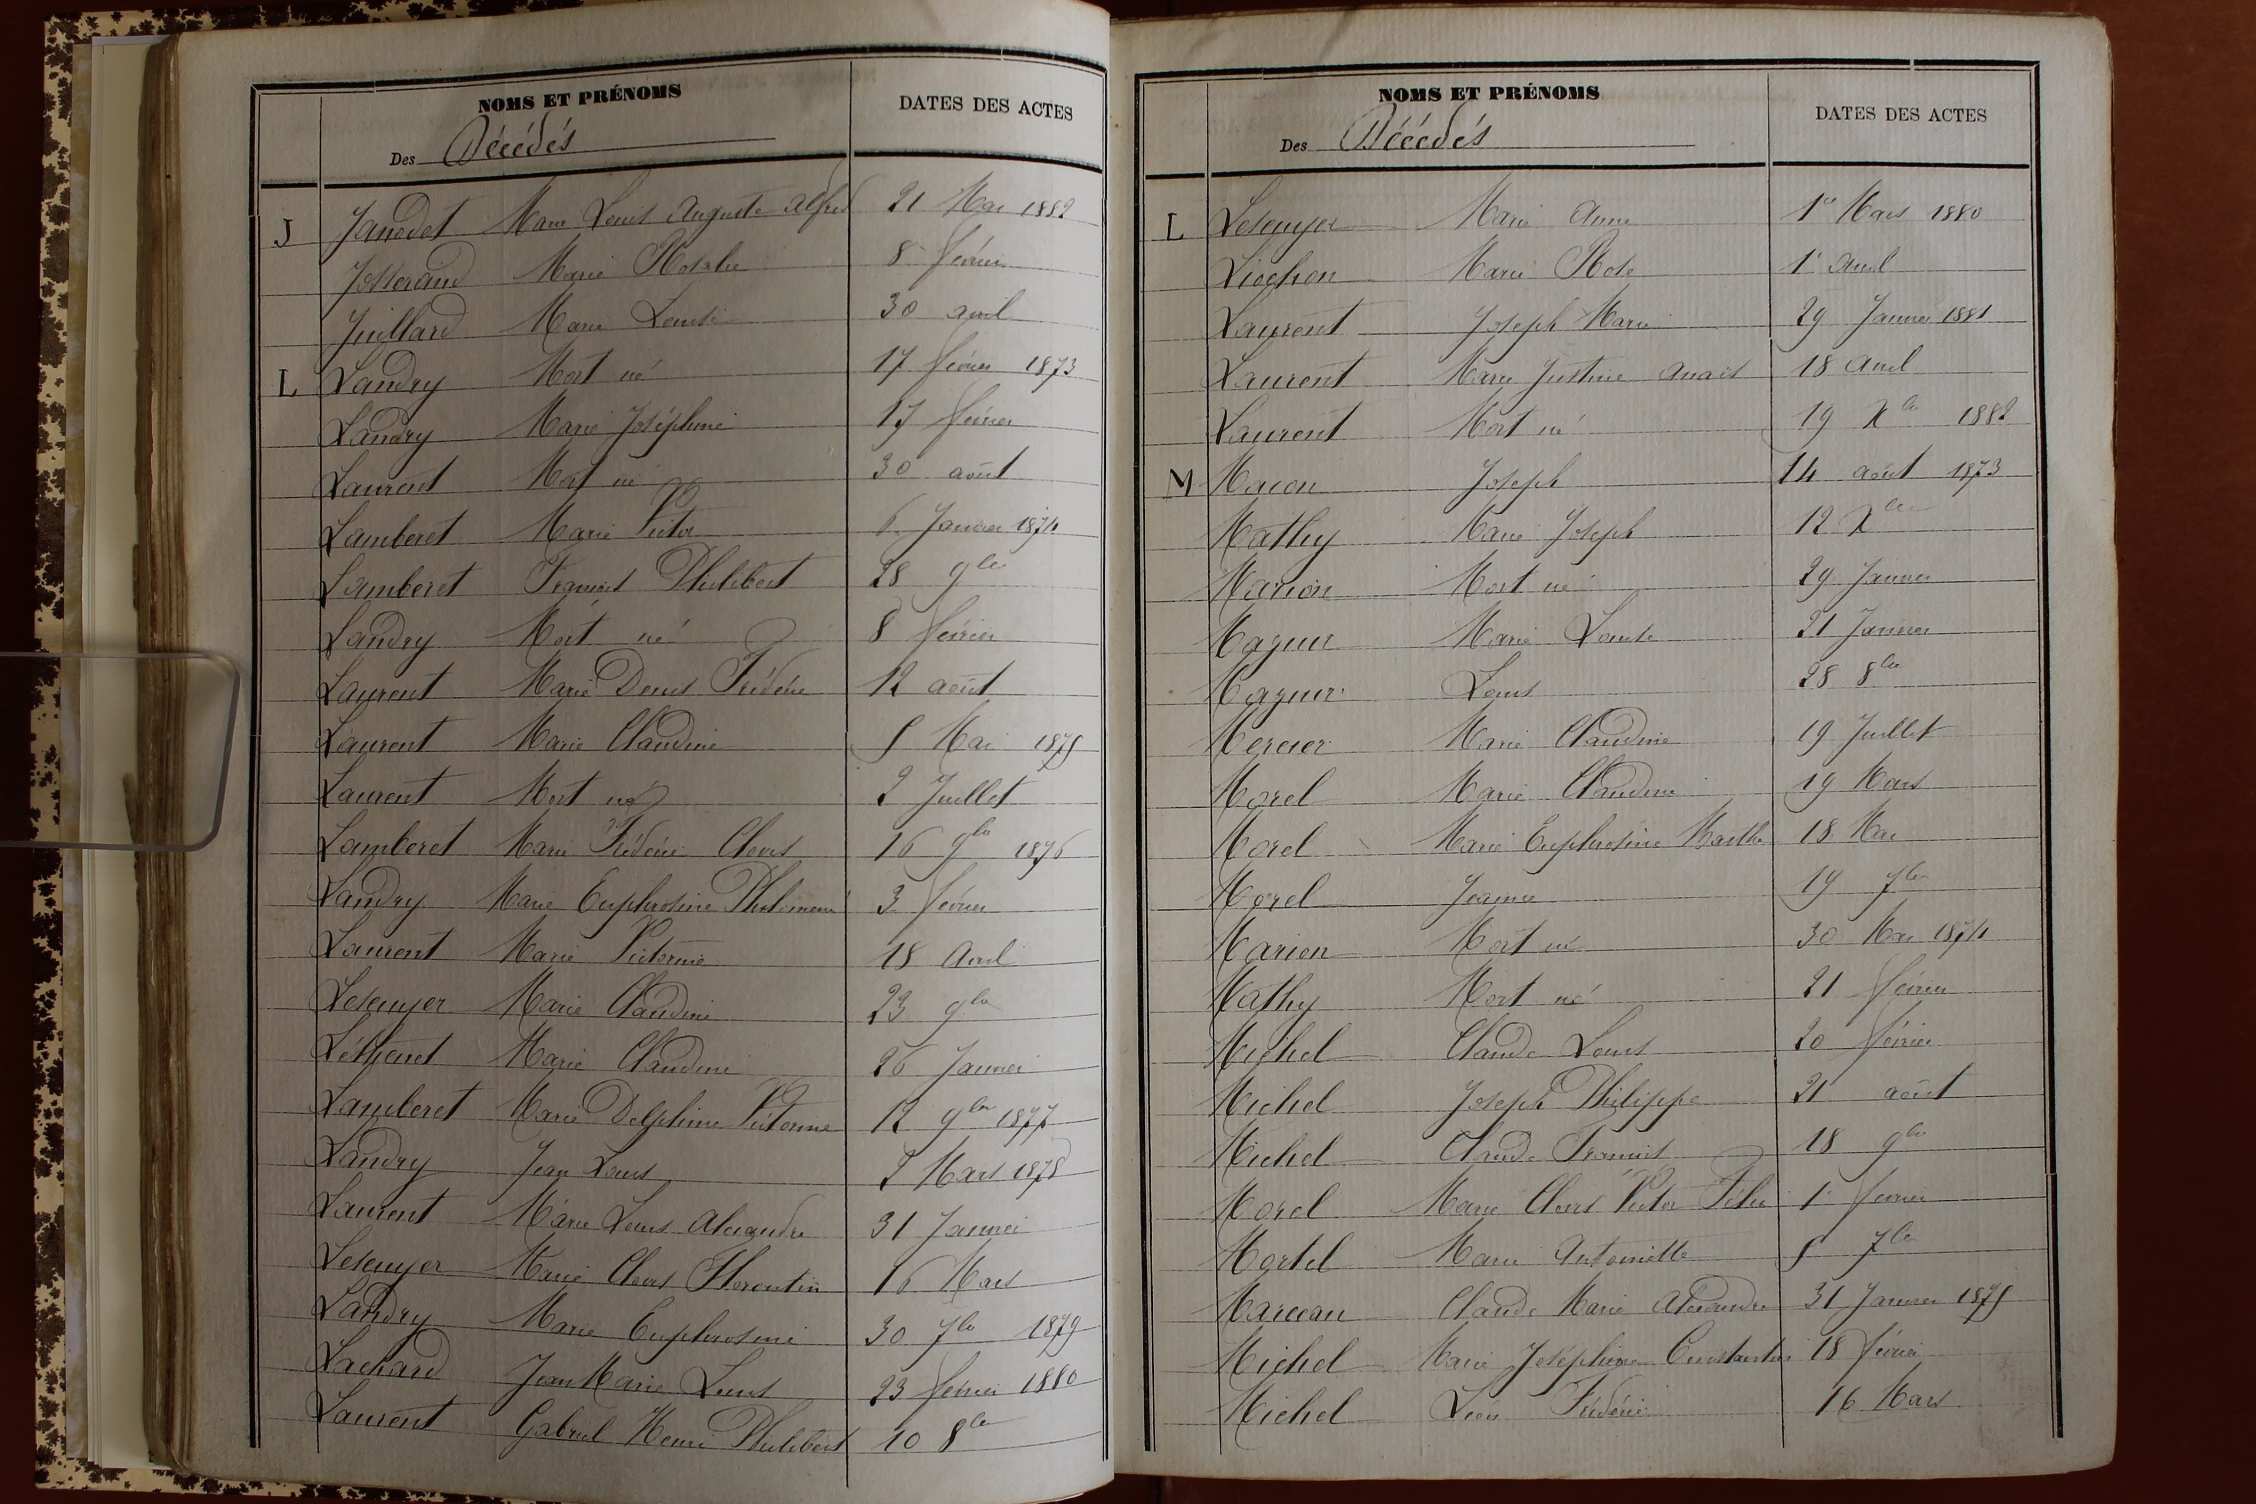 NOMS ET PRÉNOMS
DATES DES ACTES
Des Décédés
J Jandet Marie Louis Auguste Alfred 21 Mai 1882
Josserand Marie Rosalie 8 février
Juillard Marie Louise 30 avril
L Landry Mort né 17 février 1873
Landry Marie Joséphine 17 février
Laurent Mort né 30 août
Lamberet Marie Victor 6 Janvier 1874
Lamberet François Philibert 28 9bre
Landry Mort né 8 février
Laurent Marie Denis Frédéric 12 août
Laurent Marie Claudine 5 Mai 1875
Laurent Mort né 2 Juillet
Lamberet Marie Frédéric Clovis 16 9bre 1876
Landry Marie Euphrosine Philomène 3 février
Laurent Marie Victorine 18 Avril
Lescuyer Marie Claudine 23 9bre
Marie Claudine 26 Janvier
Lamberet Marie Delphine Victorine 12 9bre 1877
Landry Jean Louis 2 Mars 1878
Laurent Marie Louis Alexandre 31 Janvier
Lescuyer Marie Clovis Florentin 16 Mars
Landry Marie Euphrosine 30 7bre 1879
Lachard Jean Marie Louis 23 février 1880
Laurent Gabriel Henri Philibert 10 8bre
NOMS ET PRÉNOMS
DATES DES ACTES
Des Décédés
L Lescuyer Marie Anne 1er Mars 1880
Liochon Marie Rose 1er Avril
Laurent Joseph Marie 29 Janvier 1881
Laurent Marie Justine Anaïs 18 Avril
Laurent Mort né 19 Xbre 1882
M Macon Joseph 14 août 1873
Mathy Marie Joseph 12 Xbre
Marion Mort né 29 Janvier
Marie Louise 21 Janvier
Louis 28 8bre
Mercier Marie Claudine 19 Juillet
Morel Marie Claudine 19 Mars
Morel Marie Euphrosine Marthe 18 Mai
Morel Jeanne 19 7bre
Marion Mort né 30 Mai 1874
Mathy Mort né 21 février
Michel Claude Louis 20 février
Michel Joseph Philippe 21 août
Michel Claude François 18 9bre
Morel Marie Clovis Victor Félix 1er février
Mortel Marie Antoinette 5 7bre
Marceau Claude Marie Alexandre 31 Janvier 1875
Michel Marie Joséphine Constantin 18 février
Michel Léon Frédéric 16 Mars